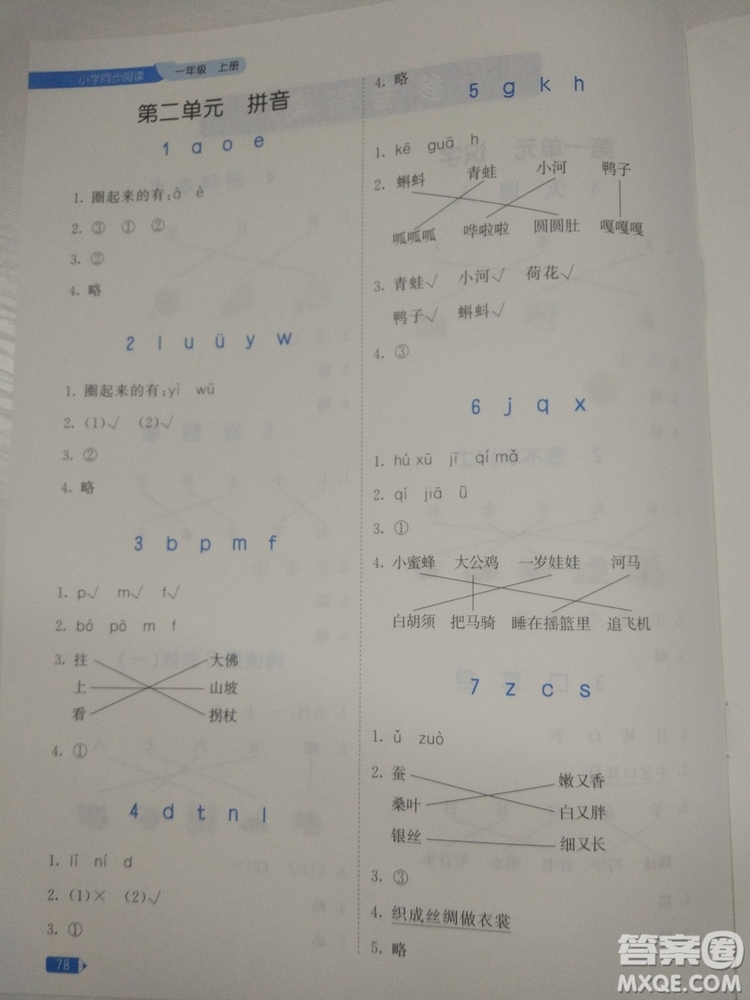 小学同步阅读 一年级 上册
第二单元 拼音
1 a o e
1. 圈起来的有：à è
2. ③ ① ②
3. ②
4. 略
2 i u ü y w
1. 圈起来的有：yì wū
2. (1)√ (2)√
3. ②
4. 略
3 b p m f
1. p√ m√ f√
2. bó pō m f
3. 拄 大佛
上 山坡
看 拐杖
4. ①
4 d t n l
1. lí ní d
2. (1)× (2)√
3. ①
78
4. 略
5 g k h
1. kē guā h
2. 蝌蚪 青蛙 小河 鸭子
呱呱呱 哗啦啦 圆圆肚 嘎嘎嘎
3. 青蛙√ 小河√ 荷花√
鸭子√ 蝌蚪√
4. ③
6 j q x
1. hú xū jī qí mǎ
2. qí jiā ū
3. ①
4. 小蜜蜂 大公鸡 一岁娃娃 河马
白胡须 把马骑 睡在摇篮里 追飞机
7 z c s
1. ǔ zuò
2. 蚕 嫩又香
桑叶 白又胖
银丝 细又长
3. ③
4. 织成丝绸做衣裳
5. 略
答案圈
MXQE.COM